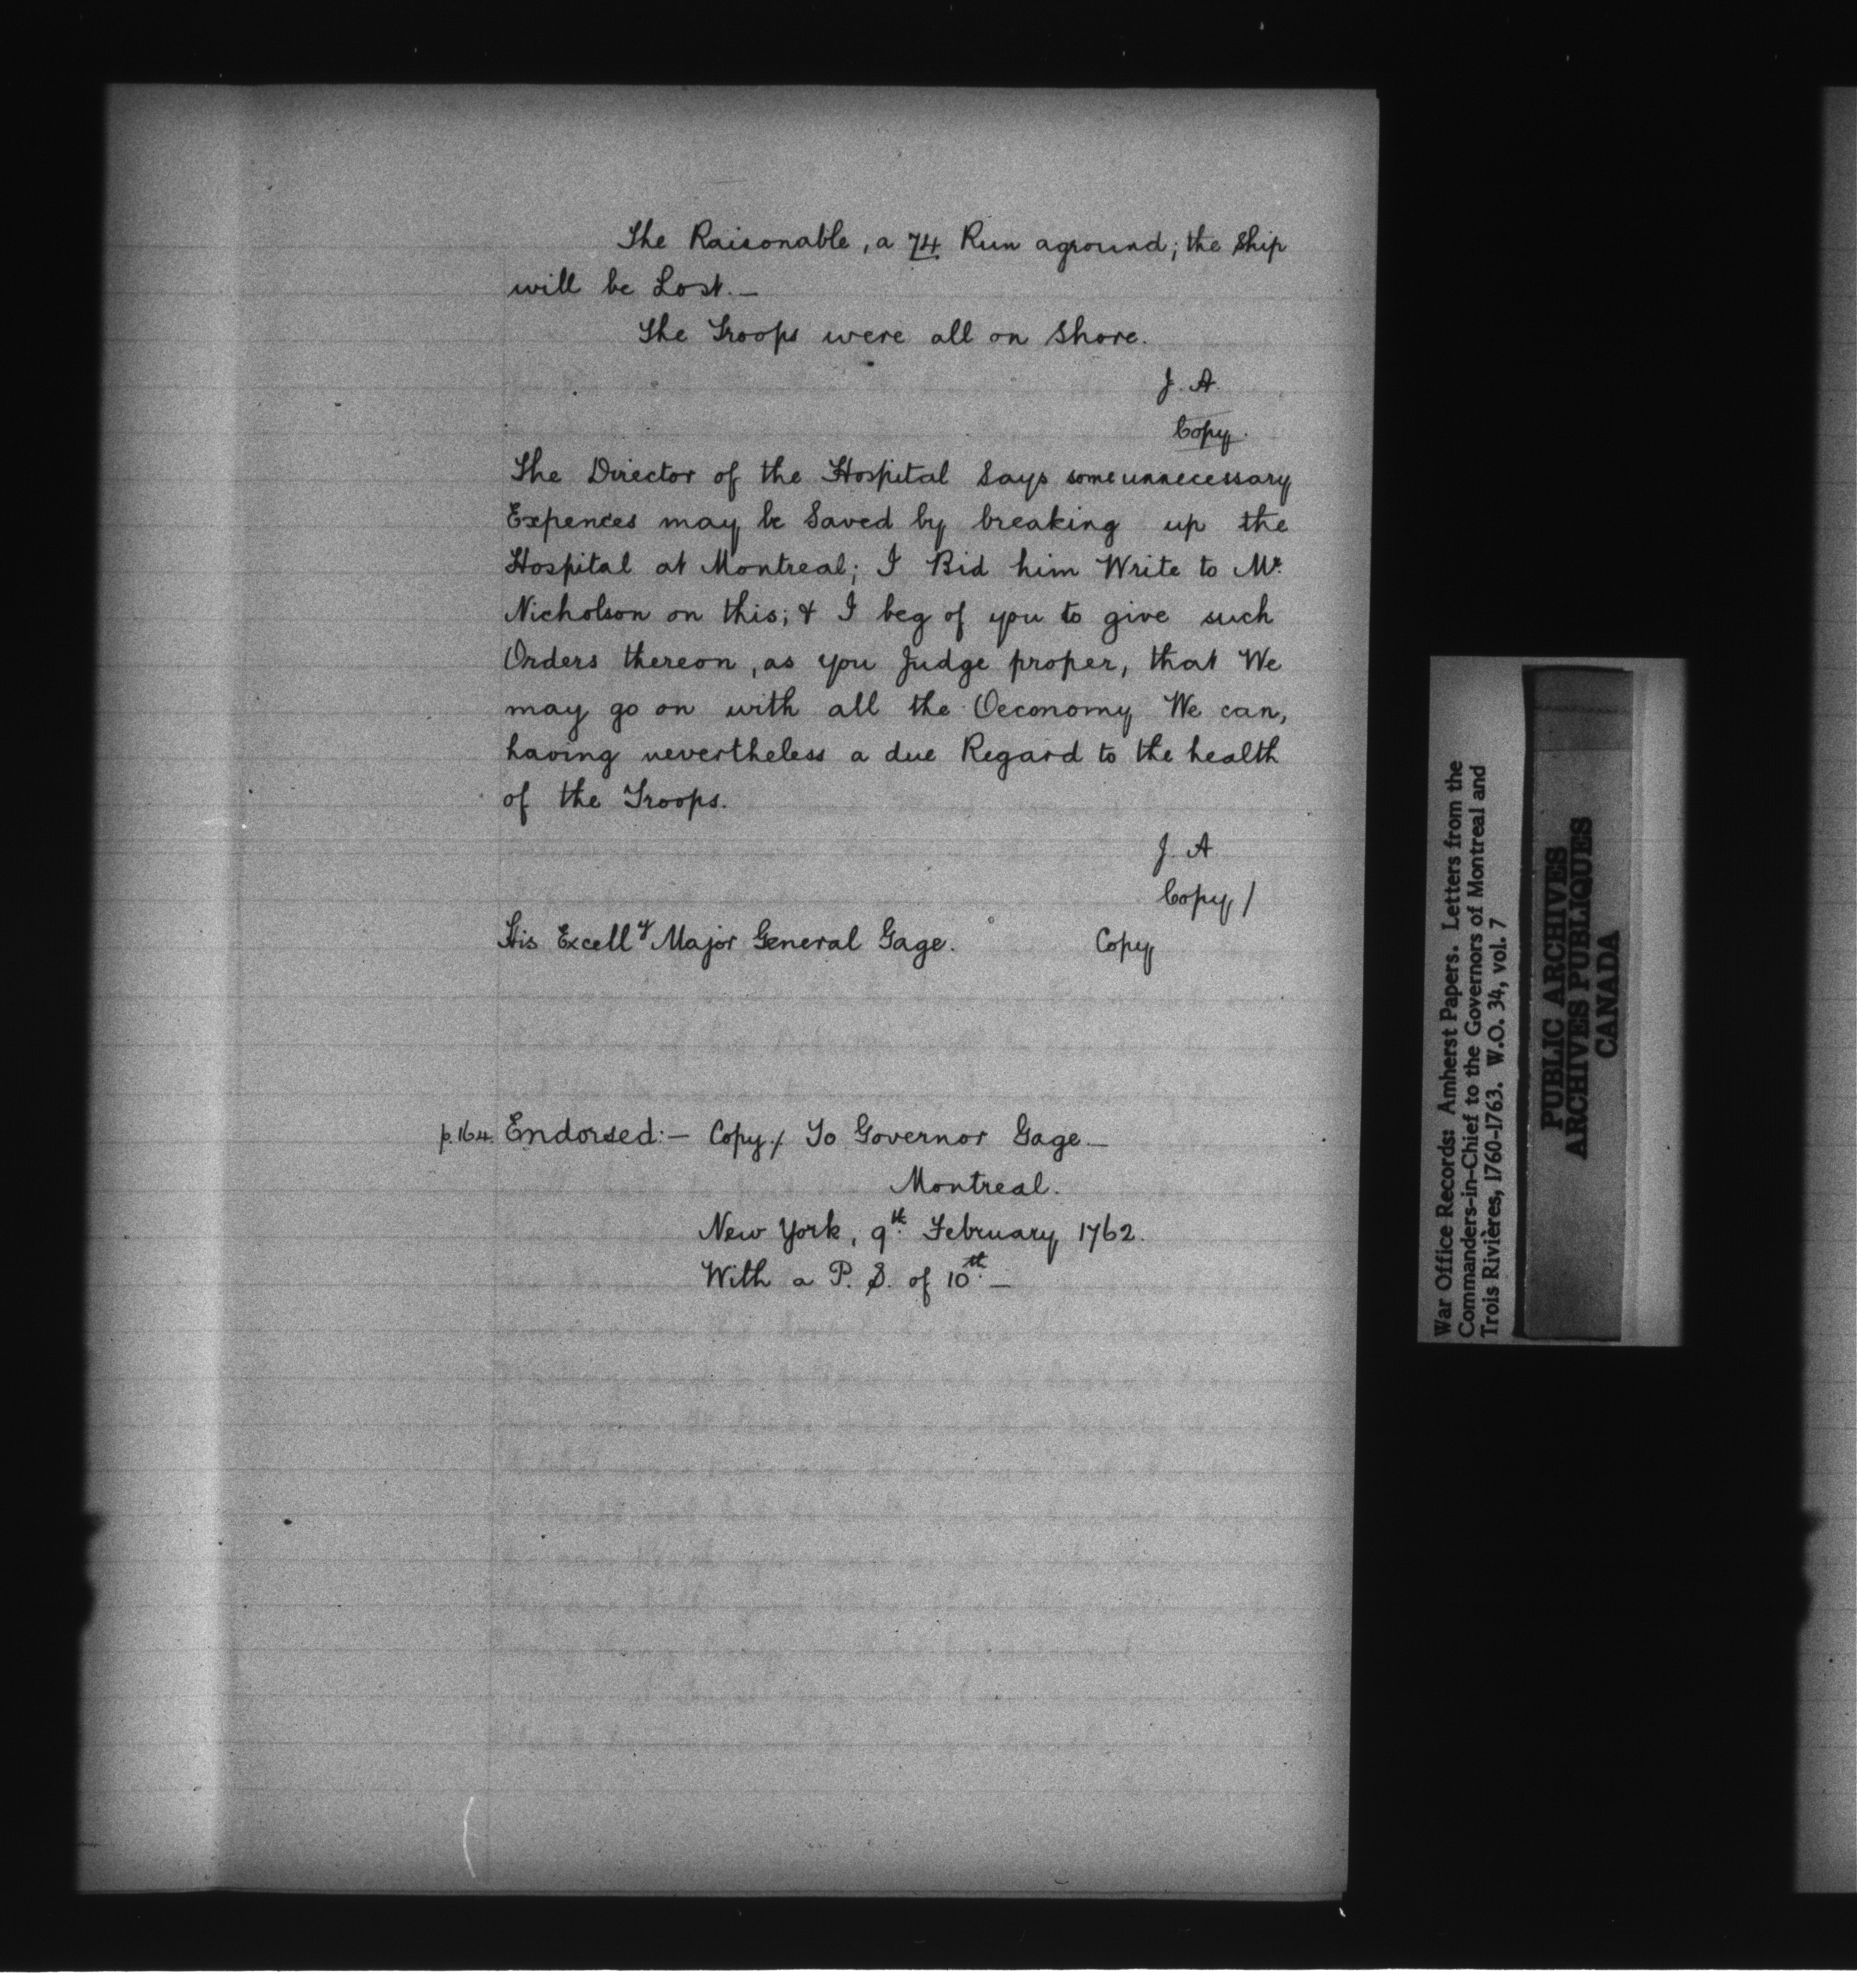 The Raisonable, a 74 Run aground; the Ship
will be Lost. —
The Troops were all on Shore.
J. A.
Copy.
The Director of the Hospital Says some unnecessary
Expences may be Saved by breaking up the
Hospital at Montreal; I Bid him Write to Mr.
Nicholson on this; & I beg of you to give such
Orders thereon, as you Judge proper, that We
may go on with all the Oeconomy We can,
having nevertheless a due Regard to the health
of the Troops.
J. A.
Copy /
His Excelly Major General Gage. Copy
p.164. Endorsed:— Copy./ To Governor Gage.—
Montreal.
New York, 9th. February 1762.
With a P. S. of 10th. —
War Office Records: Amherst Papers. Letters from the
Commanders-in-Chief to the Governors of Montreal and
Trois Rivières, 1760-1763. W.O. 34, vol. 7
PUBLIC ARCHIVES
ARCHIVES PUBLIQUES
CANADA